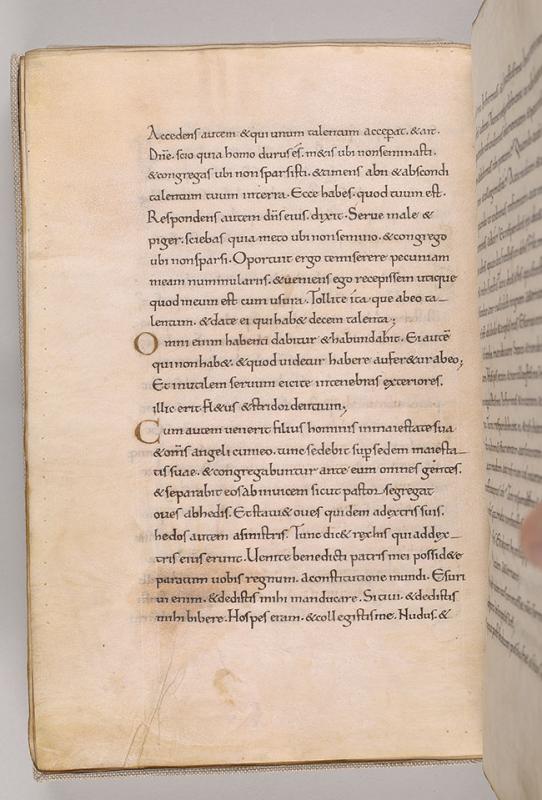 Accedens autem & qui unum talentum acceperat. & ait.
Dñe. scio quia homo durus és. m&is ubi nonseminasti.
& congregas ubi non sparsisti. & timens abii & abscondi
talentum tuum interra. Ecce habes. quod tuum est.
Respondens autem dñs eius. dixit. Serue male &
piger. sciebas quia meto ubi nonsemino. & congrego
ubi nonsparsi. Oportuit ergo temittere pecuniam
meam nummulariis. & ueniens ego recepissem utique
quod meum est cum usura. Tollite ita que abeo ta-
lentum. & date ei qui hab& decem talenta;
Omni enim habenti dabitur & habundabit. Ei autē
qui non hab&. & quod uidetur habere aufer&ur abeo;
Et inutilem seruum eicite intenebras exteriores.
illic erit fl&us & stridor dentium;
Cum autem uenerit filius hominis inmaiestate sua
& om̄s angeli cumeo. tunc sedebit sup̄ sedem maiesta-
tis suae. & congregabuntur ante eum omnes gentes.
& separabit eos abinuicem sicut pastor segregat
oues abhedis. Et statu& oues quidem adextris suis.
hedos autem asinistris. Tunc dic& rex his qui addex-
tris eius erunt. Uenite benedicti patris mei possid&e
paratum uobis regnum. aconstitutione mundi. Esuri
ui enim. & dedistis mihi manducare. Sitiui. & dedistis
mihi bibere. Hospes eram. & collegistis me. Nudus. &